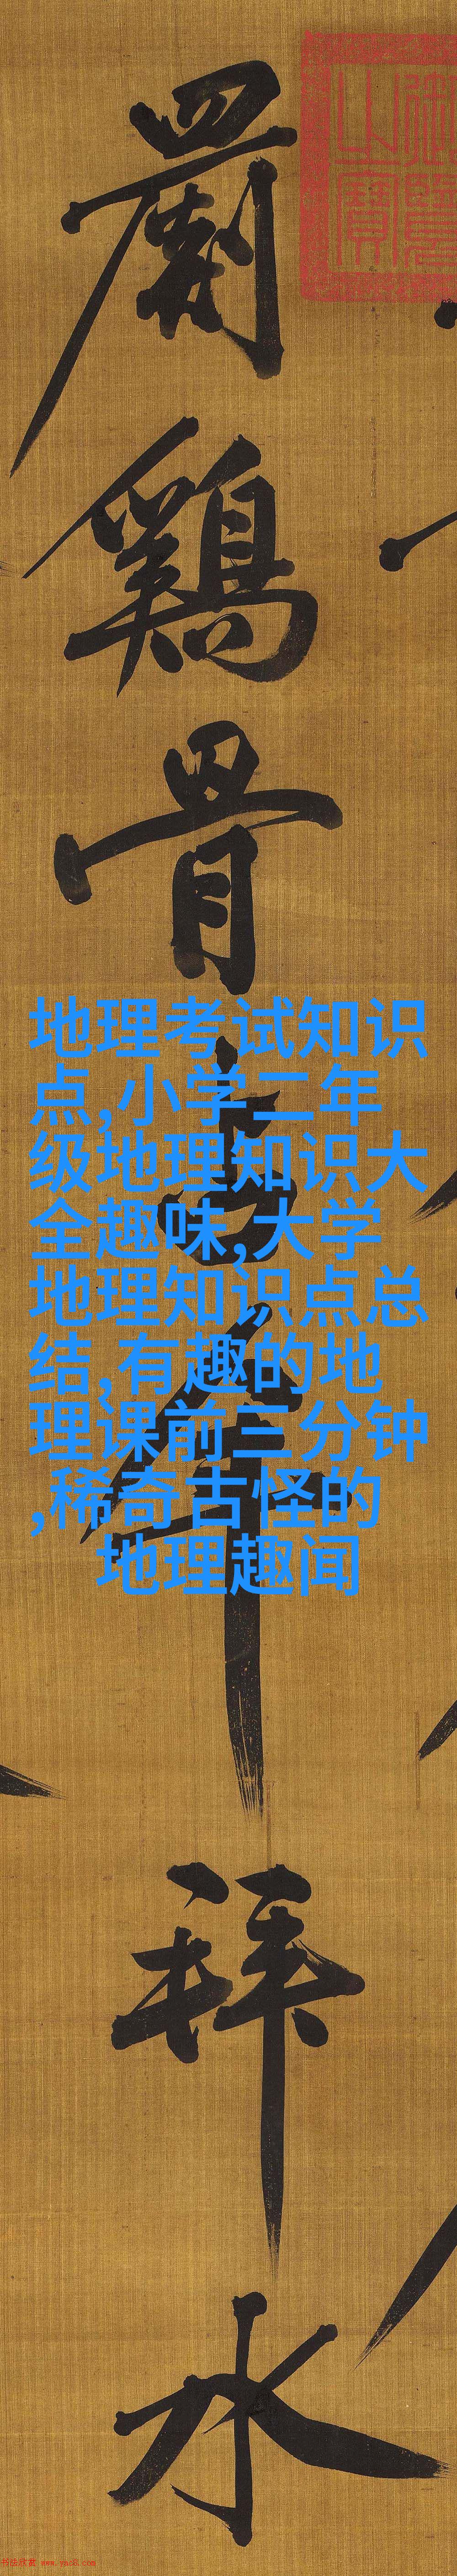 罽
鷄
骨
占
年
拜
水
地理考试知识
点,小学二年
级地理知识大
全趣味,大学
地理知识点总
结,有趣的地
理课前三分钟
,稀奇古怪的
地理趣闻
书法欣赏 www.yac8.com